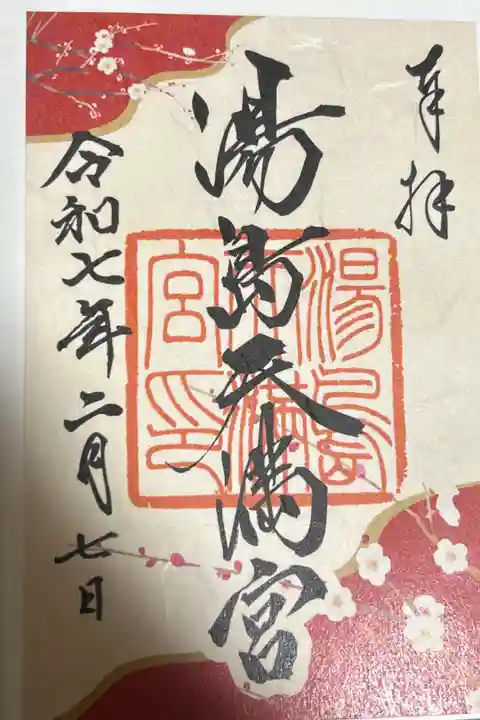 奉拝
湯島天満宮
湯島天満宮印
令和七年二月七日